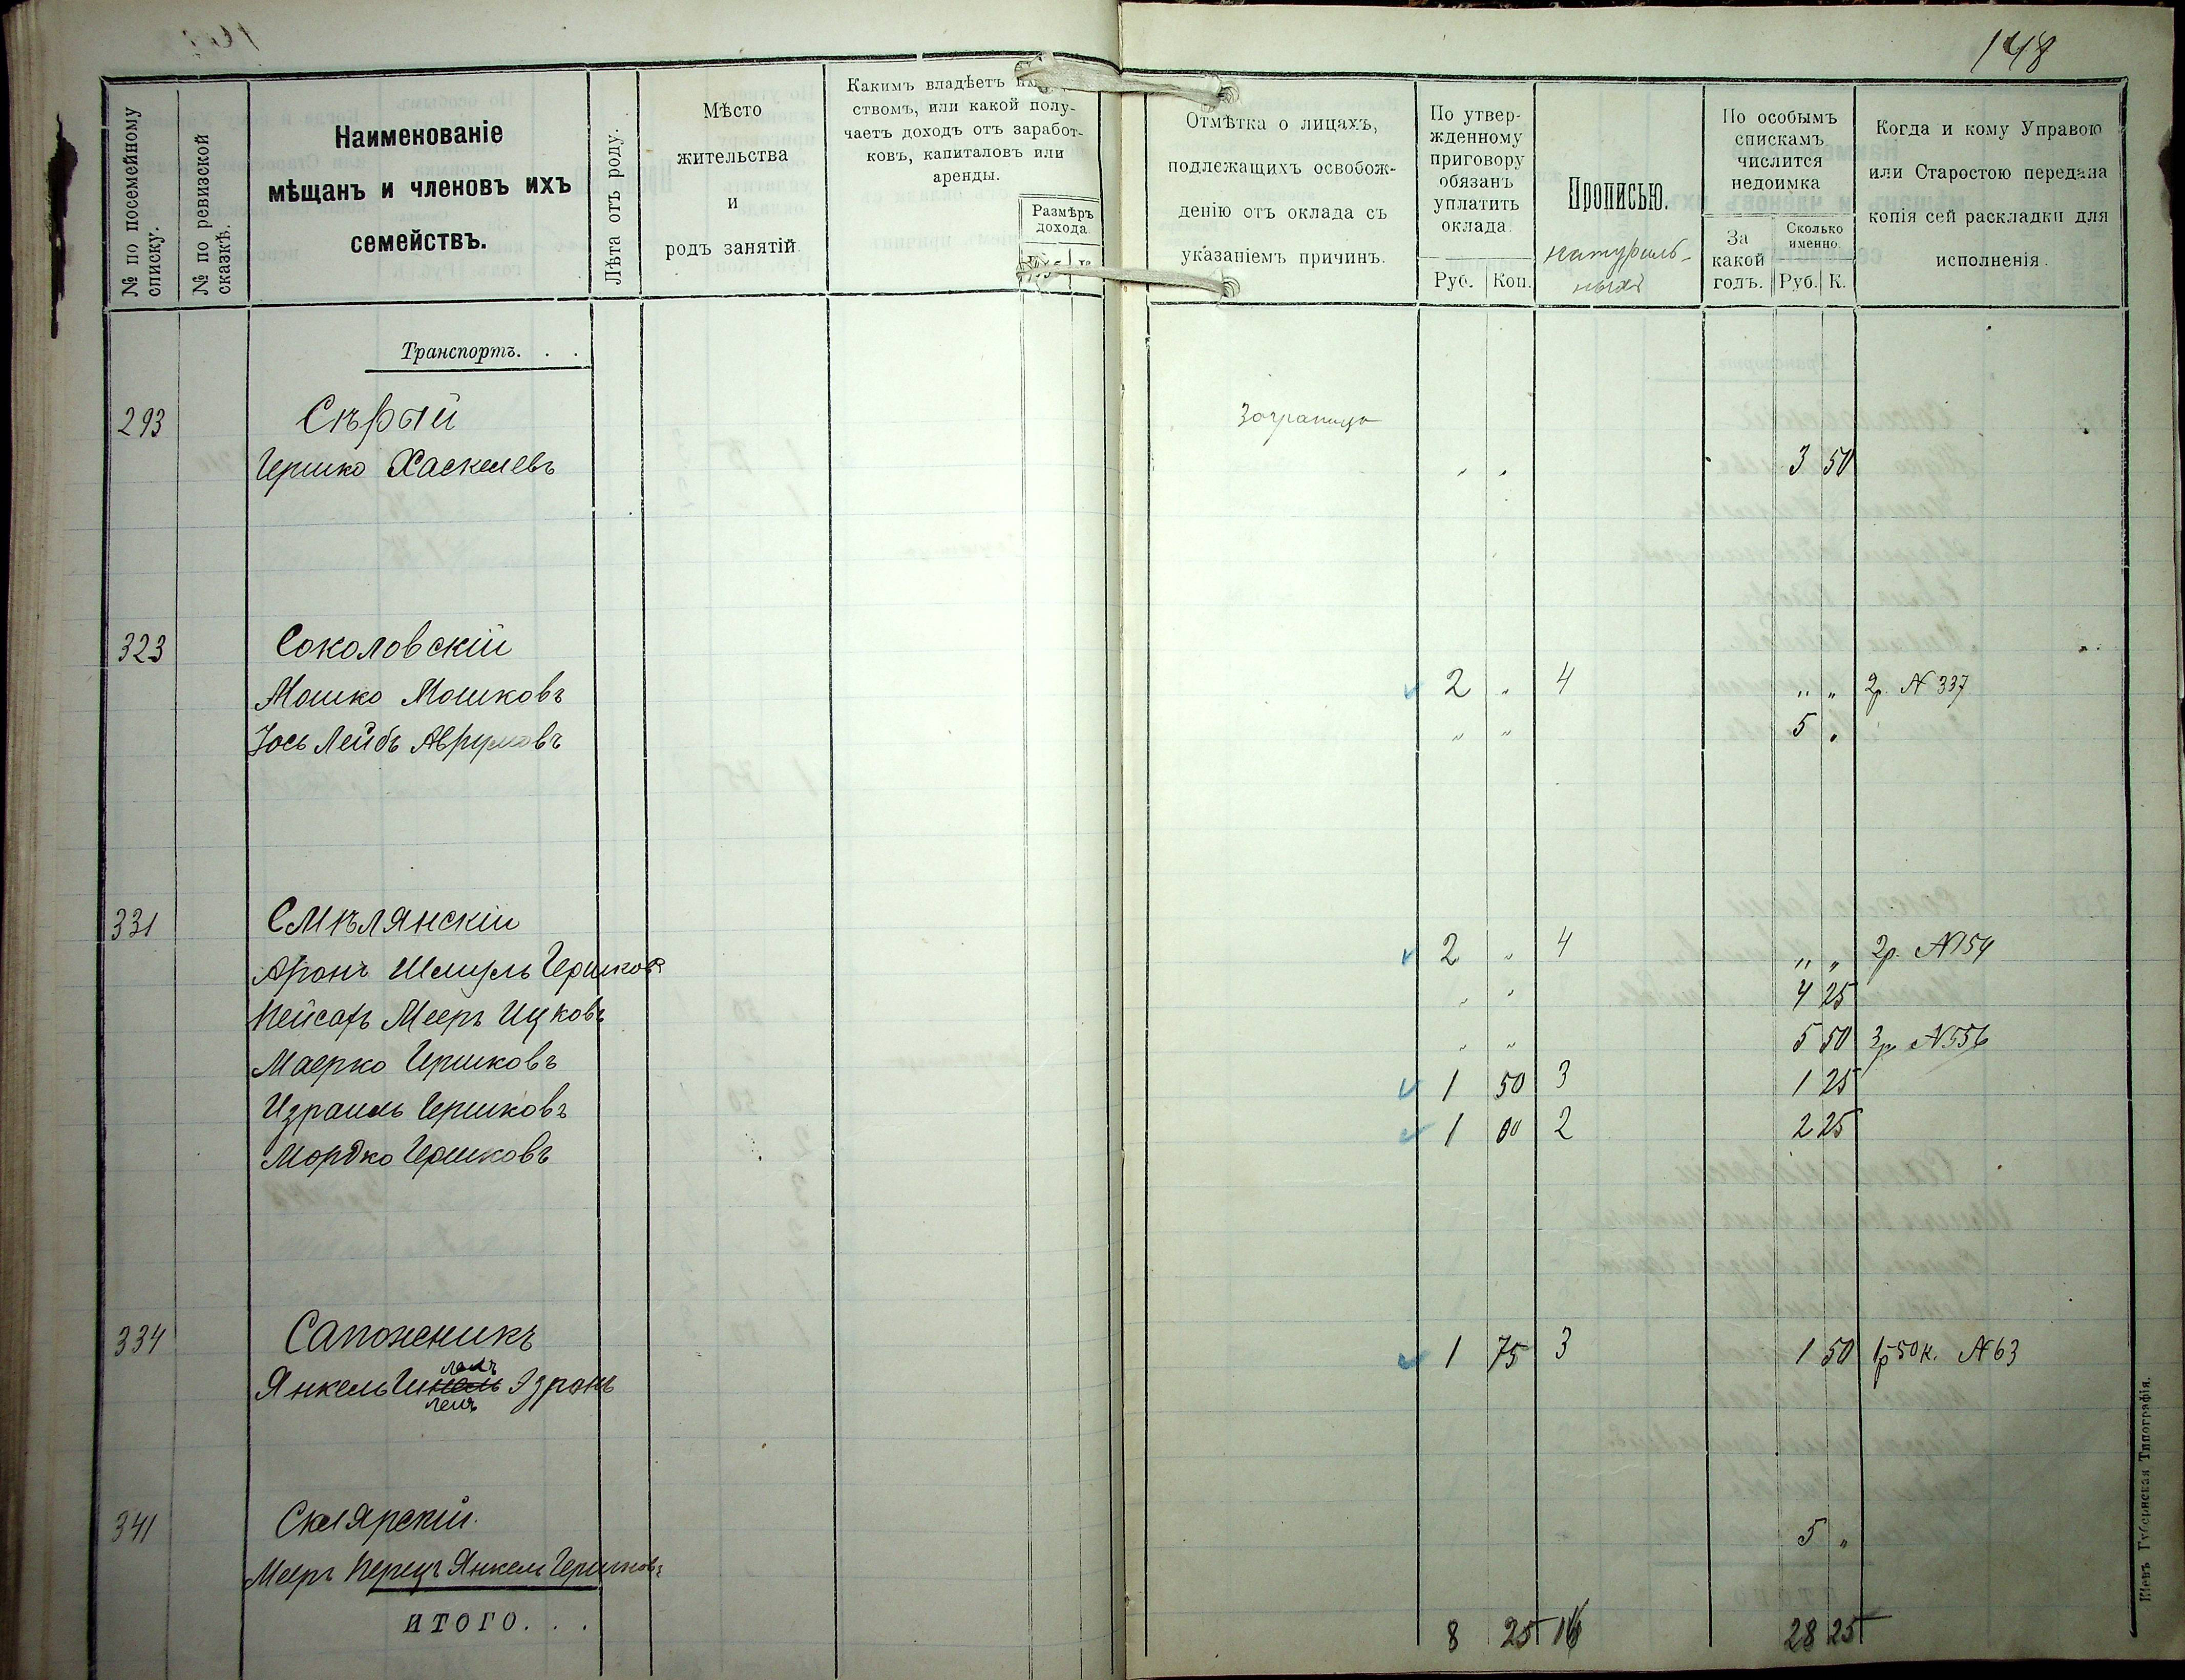 148
№ по посемейному списку.
№ по ревизской сказкѣ.
Наименованіе
мѣщанъ и членовъ ихъ
семействъ.
Лѣта отъ роду.
Мѣсто
жительства
и
родъ занятій
Каким​ъ владѣетъ
ствомъ, или какой полу-
чаетъ доходъ отъ заработ-
ковъ, капиталовъ или
аренды.
Размѣръ
дохода.
Отмѣтка о лицахъ,
подлежащихъ освобож-
денію отъ оклада съ
указаніемъ причинъ.
По утвер-
жденному
приговору
обязанъ
уплатить
оклада.
Руб. Коп.
Прописью.
натураль-
ныхъ
По особымъ
спискамъ
числится
недоимка
За
какой
годъ.
Сколько
именно.
Руб. К.
Когда и кому Управою
или Старостою передана
копія сей раскладки для
исполненія.
Транспортъ. . .
293 Сѣрый Заграница
Гершко Хаскелевъ „ „ 3 50
323 Соколовскій
Мошко Мошковъ 2 „ 4 „ „ 2р. № 337
Іось Лейбъ Аврумовъ „ „ 5 „
331 Смѣлянскій
Аронъ Шмуль Гершковъ 2 „ 4 „ „ 2р. № 154
Пейсахъ Мееръ Ицковъ „ „ 4 25
Маерко Гершковъ „ „ 5 50 3р №556
Израиль Гершковъ 1 50 3 1 25
Мордко Гершковъ 1 00 2 2 25
334 Сапожникъ 1 75 3 1 50 1р50к. № 63
Янкель Эзронъ
341 Склярскій 5 „
Мееръ Перецъ Янкель Гершковъ
ИТОГО. . . 8 25 16 28 25
Кіевъ Губернская Типографія.